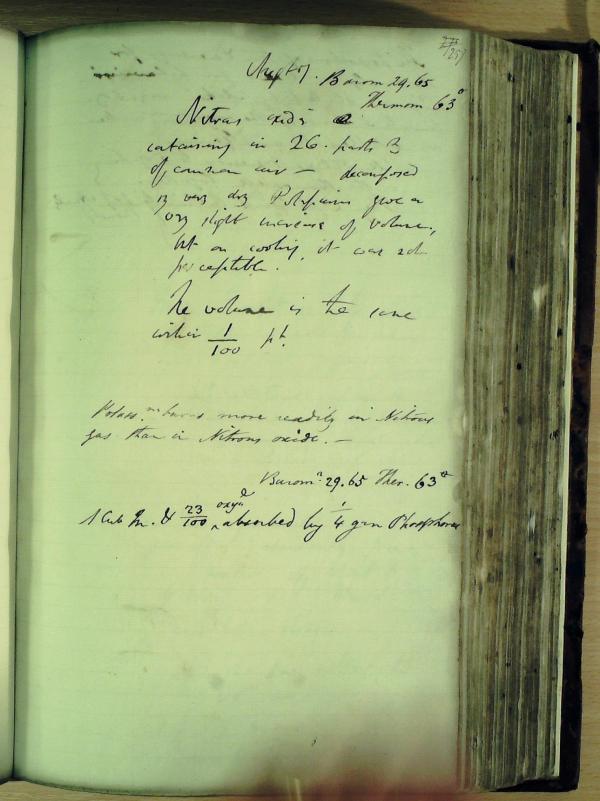 Barom 29.65
Thermom 63°
Nitrous oxide
containing in 26. parts 3
of common air – decomposed
by very dry Potassium gave a
very slight increase of volume,
but on cooling, it was not
perceptible.
The volume is the same
within 1/100 pt.
Potass.m burns more readily in Nitrous
gas than in Nitrous oxide. –
Barom.r 29.65 Ther. 63°
1 Cub In. & 23/100 oxyg absorbed by 1/4 grn Phosphorus